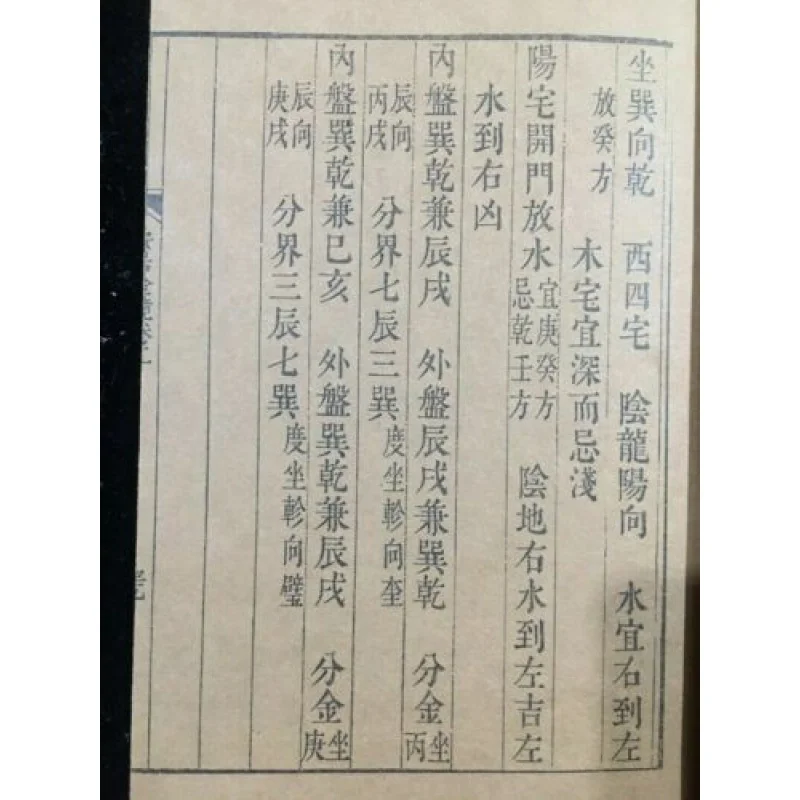 坐巽向乾　西四宅　陰龍陽向　水宜右到左
放癸方　木宅宜深而忌淺
陽宅開門放水　宜庚癸方忌乾壬方　陰地右水到左吉左
水到右凶
內盤巽乾兼辰戌　外盤辰戌兼巽乾　分金坐丙
辰向丙戌　分界七辰三巽　度坐軫向奎
內盤巽乾兼巳亥　外盤巽乾兼辰戌　分金坐庚
辰向庚戌　分界三辰七巽　度坐軫向璧